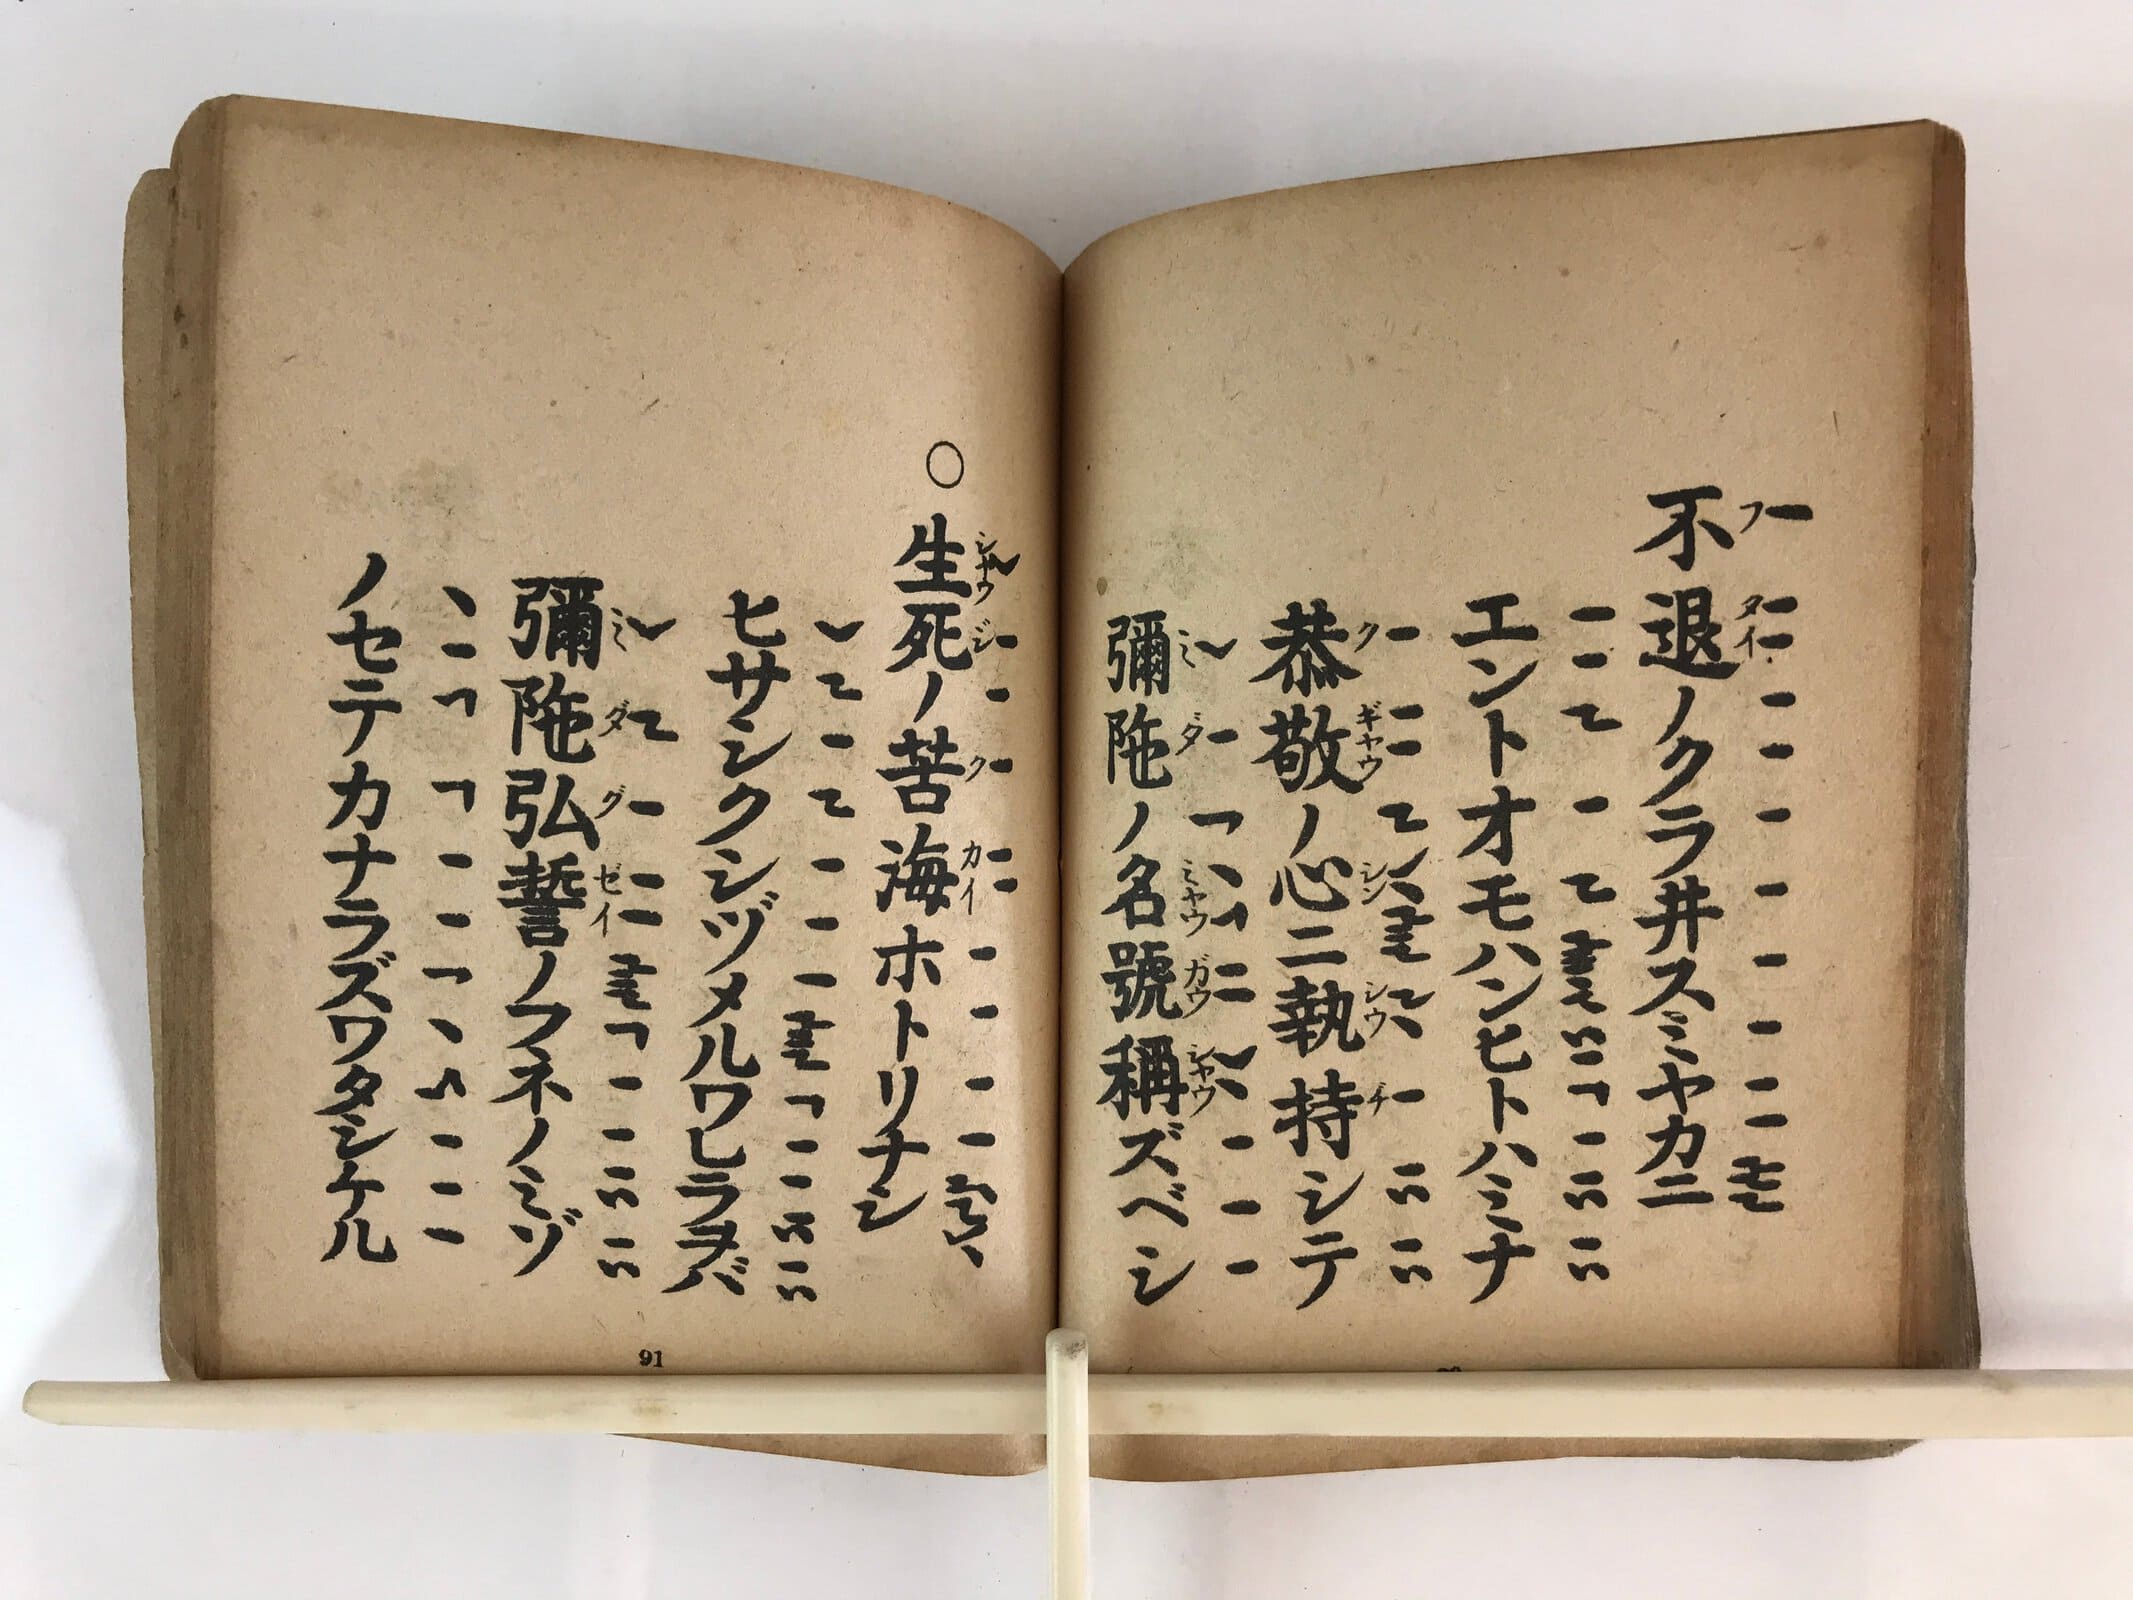 不退ノクラ井スミヤカニ
エントオモハンヒトハミナ
恭敬ノ心ニ執持シテ
彌陀ノ名號稱ズベシ
○生死ノ苦海ホトリナシ
ヒサシクシヅメルワレラヲバ
彌陀弘誓ノフネノミゾ
ノセテカナラズワタシケル
91